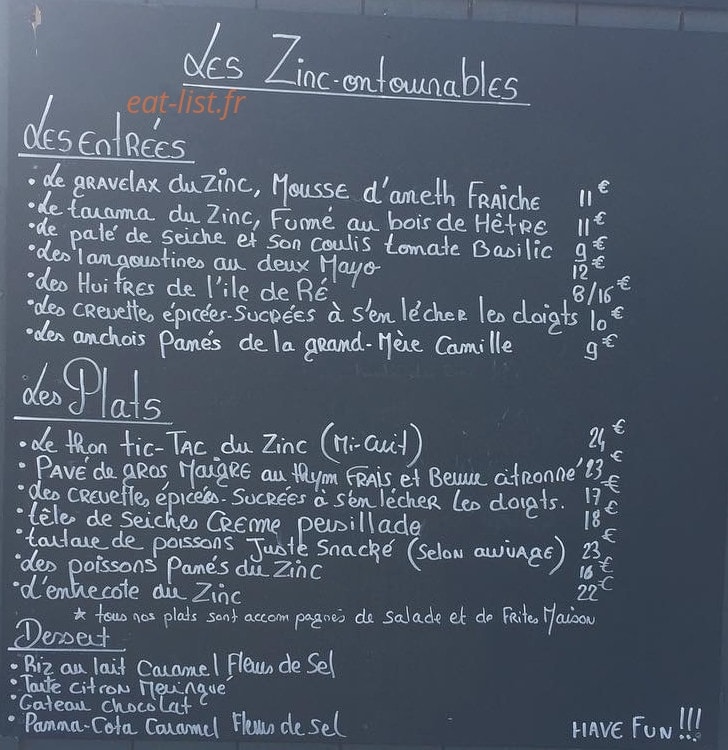 Les Zinc-ontournables
eat-list.fr
Les Entrées
• Le gravelax du Zinc, Mousse d'aneth Fraîche 11€
• Le tarama du Zinc, Fumé au bois de Hêtre 11€
• Le paté de Seiche et son coulis tomate Basilic 9€
• Les langoustines au deux Mayo 12€
• Les Huitres de l'ile de Ré 8/16€
• Les crevettes épicées-sucrées à s'en lécher les doigts 10€
• Les anchois Panés de la grand-Mère Camille 9€
Les Plats
• Le thon tic-Tac du Zinc (Mi-cuit) 24€
• Pavé de gros Maigre au thym Frais et Beurre citronné 23€
• Les crevettes épicées-sucrées à s'en lécher les doigts. 17€
• tête de Seiches Creme persillade 18€
• tartare de poissons Juste Snacké (Selon arrivage) 23€
• Les poissons Panés du Zinc 16€
• L'entrecote du Zinc 22€
* tous nos plats sont accompagnés de salade et de Frites Maison
Dessert
• Riz au lait Caramel Fleur de Sel
• Tarte citron Meringué
• Gateau chocolat
• Panna-Cota Caramel Fleur de sel
Have Fun!!!